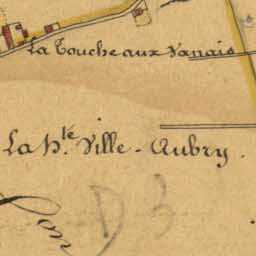 La Touche aux Vanais
La h.te Ville-Aubry.
D 3